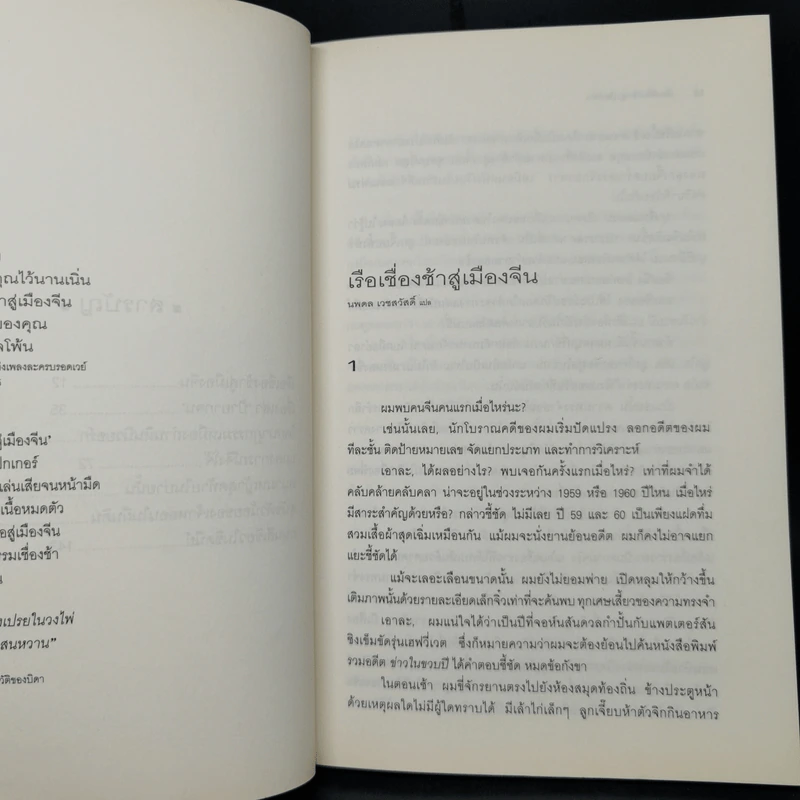 คุณไว้นานเนิ่น
าสู่เมืองจีน
ของคุณ
จโพ้น
งเพลงละครบรอดเวย์
สู่เมืองจีน'
ปีกเกอร์
เล่นเสียจนหน้ามืด
เนื้อหมดตัว
อสู่เมืองจีน
รมเชื่องช้า
น
งเปรยในวงไพ่
สนหวาน"
วัติของบิดา
เรือเชื่องช้าสู่เมืองจีน
นพดล เวชสวัสดิ์ แปล
1
ผมพบคนจีนคนแรกเมื่อไหร่นะ?
เช่นนั้นเลย, นักโบราณคดีของผมเริ่มปัดแปรง ลอกอดีตของผม
ทีละชั้น ติดป้ายหมายเลข จัดแยกประเภท และทำการวิเคราะห์
เอาละ, ได้ผลอย่างไร? พบเจอกันครั้งแรกเมื่อไหร่? เท่าที่ผมจำได้
คลับคล้ายคลับคลา น่าจะอยู่ในช่วงระหว่าง 1959 หรือ 1960 ปีไหน เมื่อไหร่
มีสาระสำคัญด้วยหรือ? กล่าวชี้ชัด ไม่มีเลย ปี 59 และ 60 เป็นเพียงแฝดที่ม
สวมเสื้อผ้าสุดเฉิ่มเหมือนกัน แม้ผมจะนั่งยานย้อนอดีต ผมก็คงไม่อาจแยก
แยะชี้ชัดได้
แม้จะเลอะเลือนขนาดนั้น ผมยังไม่ยอมพ่าย เปิดหลุมให้กว้างขึ้น
เติมภาพนั้นด้วยรายละเอียดเล็กจิ๋วเท่าที่จะค้นพบ ทุกเศษเสี้ยวของความทรงจำ
เอาละ, ผมแน่ใจได้ว่าเป็นปีที่จอห์นสันดวลกำปั้นกับแพตเตอร์สัน
ชิงเข็มขัดรุ่นเฮฟวี่เวต ซึ่งก็หมายความว่าผมจะต้องย้อนไปค้นหนังสือพิมพ์
รวมอดีต ข่าวในขวบปี ได้คำตอบชี้ชัด หมดข้อกังขา
ในตอนเช้า ผมขี่จักรยานตรงไปยังห้องสมุดท้องถิ่น ข้างประตูหน้า
ด้วยเหตุผลใดไม่มีผู้ใดทราบได้ มีเล้าไก่เล็กๆ ลูกเจี๊ยบห้าตัวจิกกินอาหาร